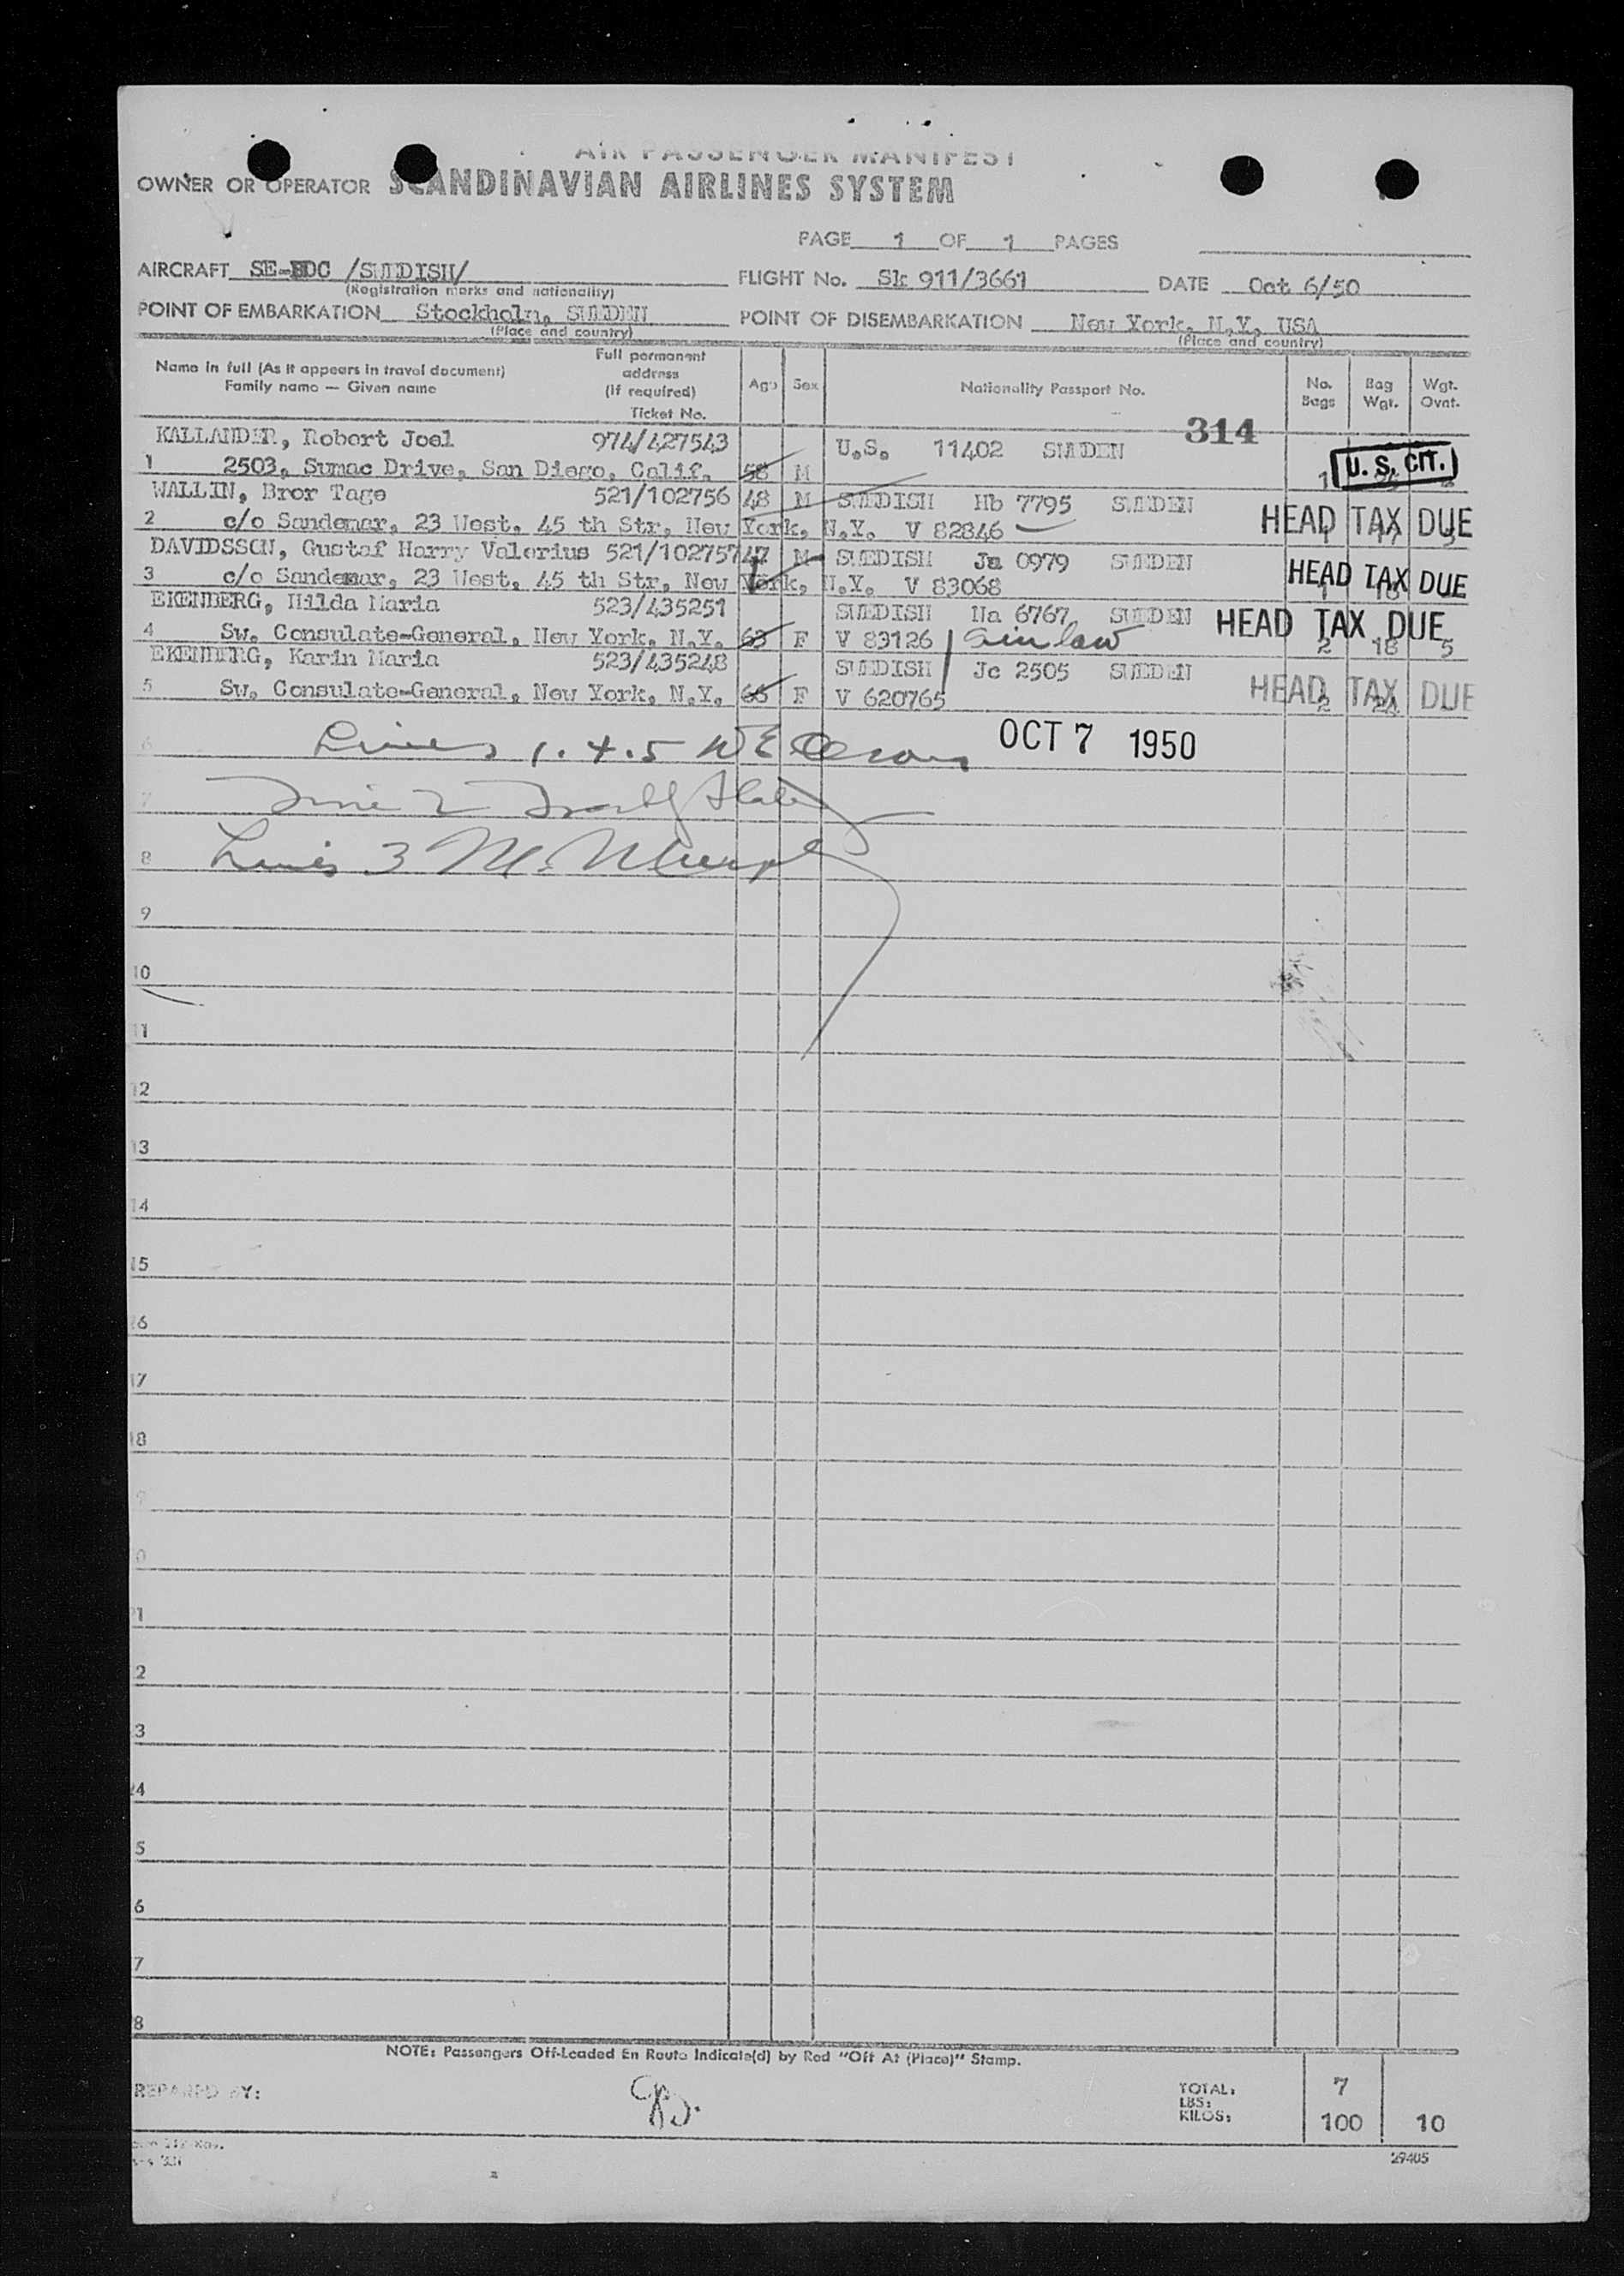 AIR PASSENGER MANIFEST
OWNER OR OPERATOR SCANDINAVIAN AIRLINES SYSTEM
PAGE 1 OF 1 PAGES
AIRCRAFT SE-BDC /SWEDISH/ FLIGHT No. Sk 911/3661 DATE Oct 6/50
(Registration marks and nationality)
POINT OF EMBARKATION Stockholm, SWEDEN POINT OF DISEMBARKATION New York, N.Y. USA
(Place and country) (Place and country)
Name in full (As it appears in travel document) Family name — Given name Full permanent address (If required) Ticket No. Age Sex Nationality Passport No. No. Bags Bag Wgt. Wgt. Ovnt.
314
KALLANDER, Robert Joel 974/427543 U.S. 11402 SWEDEN
1 2503, Sumac Drive, San Diego, Calif. 58 M 1 U. S. CIT.
WALLIN, Bror Tage 521/102756 48 M SWEDISH Hb 7795 SWEDEN
2 c/o Sandemar, 23 West. 45 th Str, New York, N.Y. V 82846 HEAD TAX DUE
DAVIDSSON, Gustaf Harry Valerius 521/102757 47 M SWEDISH Ja 0979 SWEDEN
3 c/o Sandemar, 23 West. 45 th Str, New York, N.Y. V 83068 HEAD TAX DUE
EKENBERG, Hilda Maria 523/435251 SWEDISH Na 6767 SWEDEN HEAD TAX DUE
4 Sw. Consulate-General, New York, N.Y. 63 F V 83126 sin law 2 18 5
EKENBERG, Karin Maria 523/435248 SWEDISH Jc 2505 SWEDEN
5 Sw. Consulate-General, New York, N.Y. 65 F V 620765 HEAD TAX DUE 2
6 Lines 1.4.5 WE OCT 7 1950
7 Line 2
8 Lines 3 M.
9
10
11
12
13
14
15
16
17
18
9
0
21
2
3
24
5
6
7
8
NOTE: Passengers Off-Loaded En Route Indicate(d) by Red "Off At (Place)" Stamp.
PREPARED BY: TOTAL: 7
LBS:
KILOS: 100 10
29405